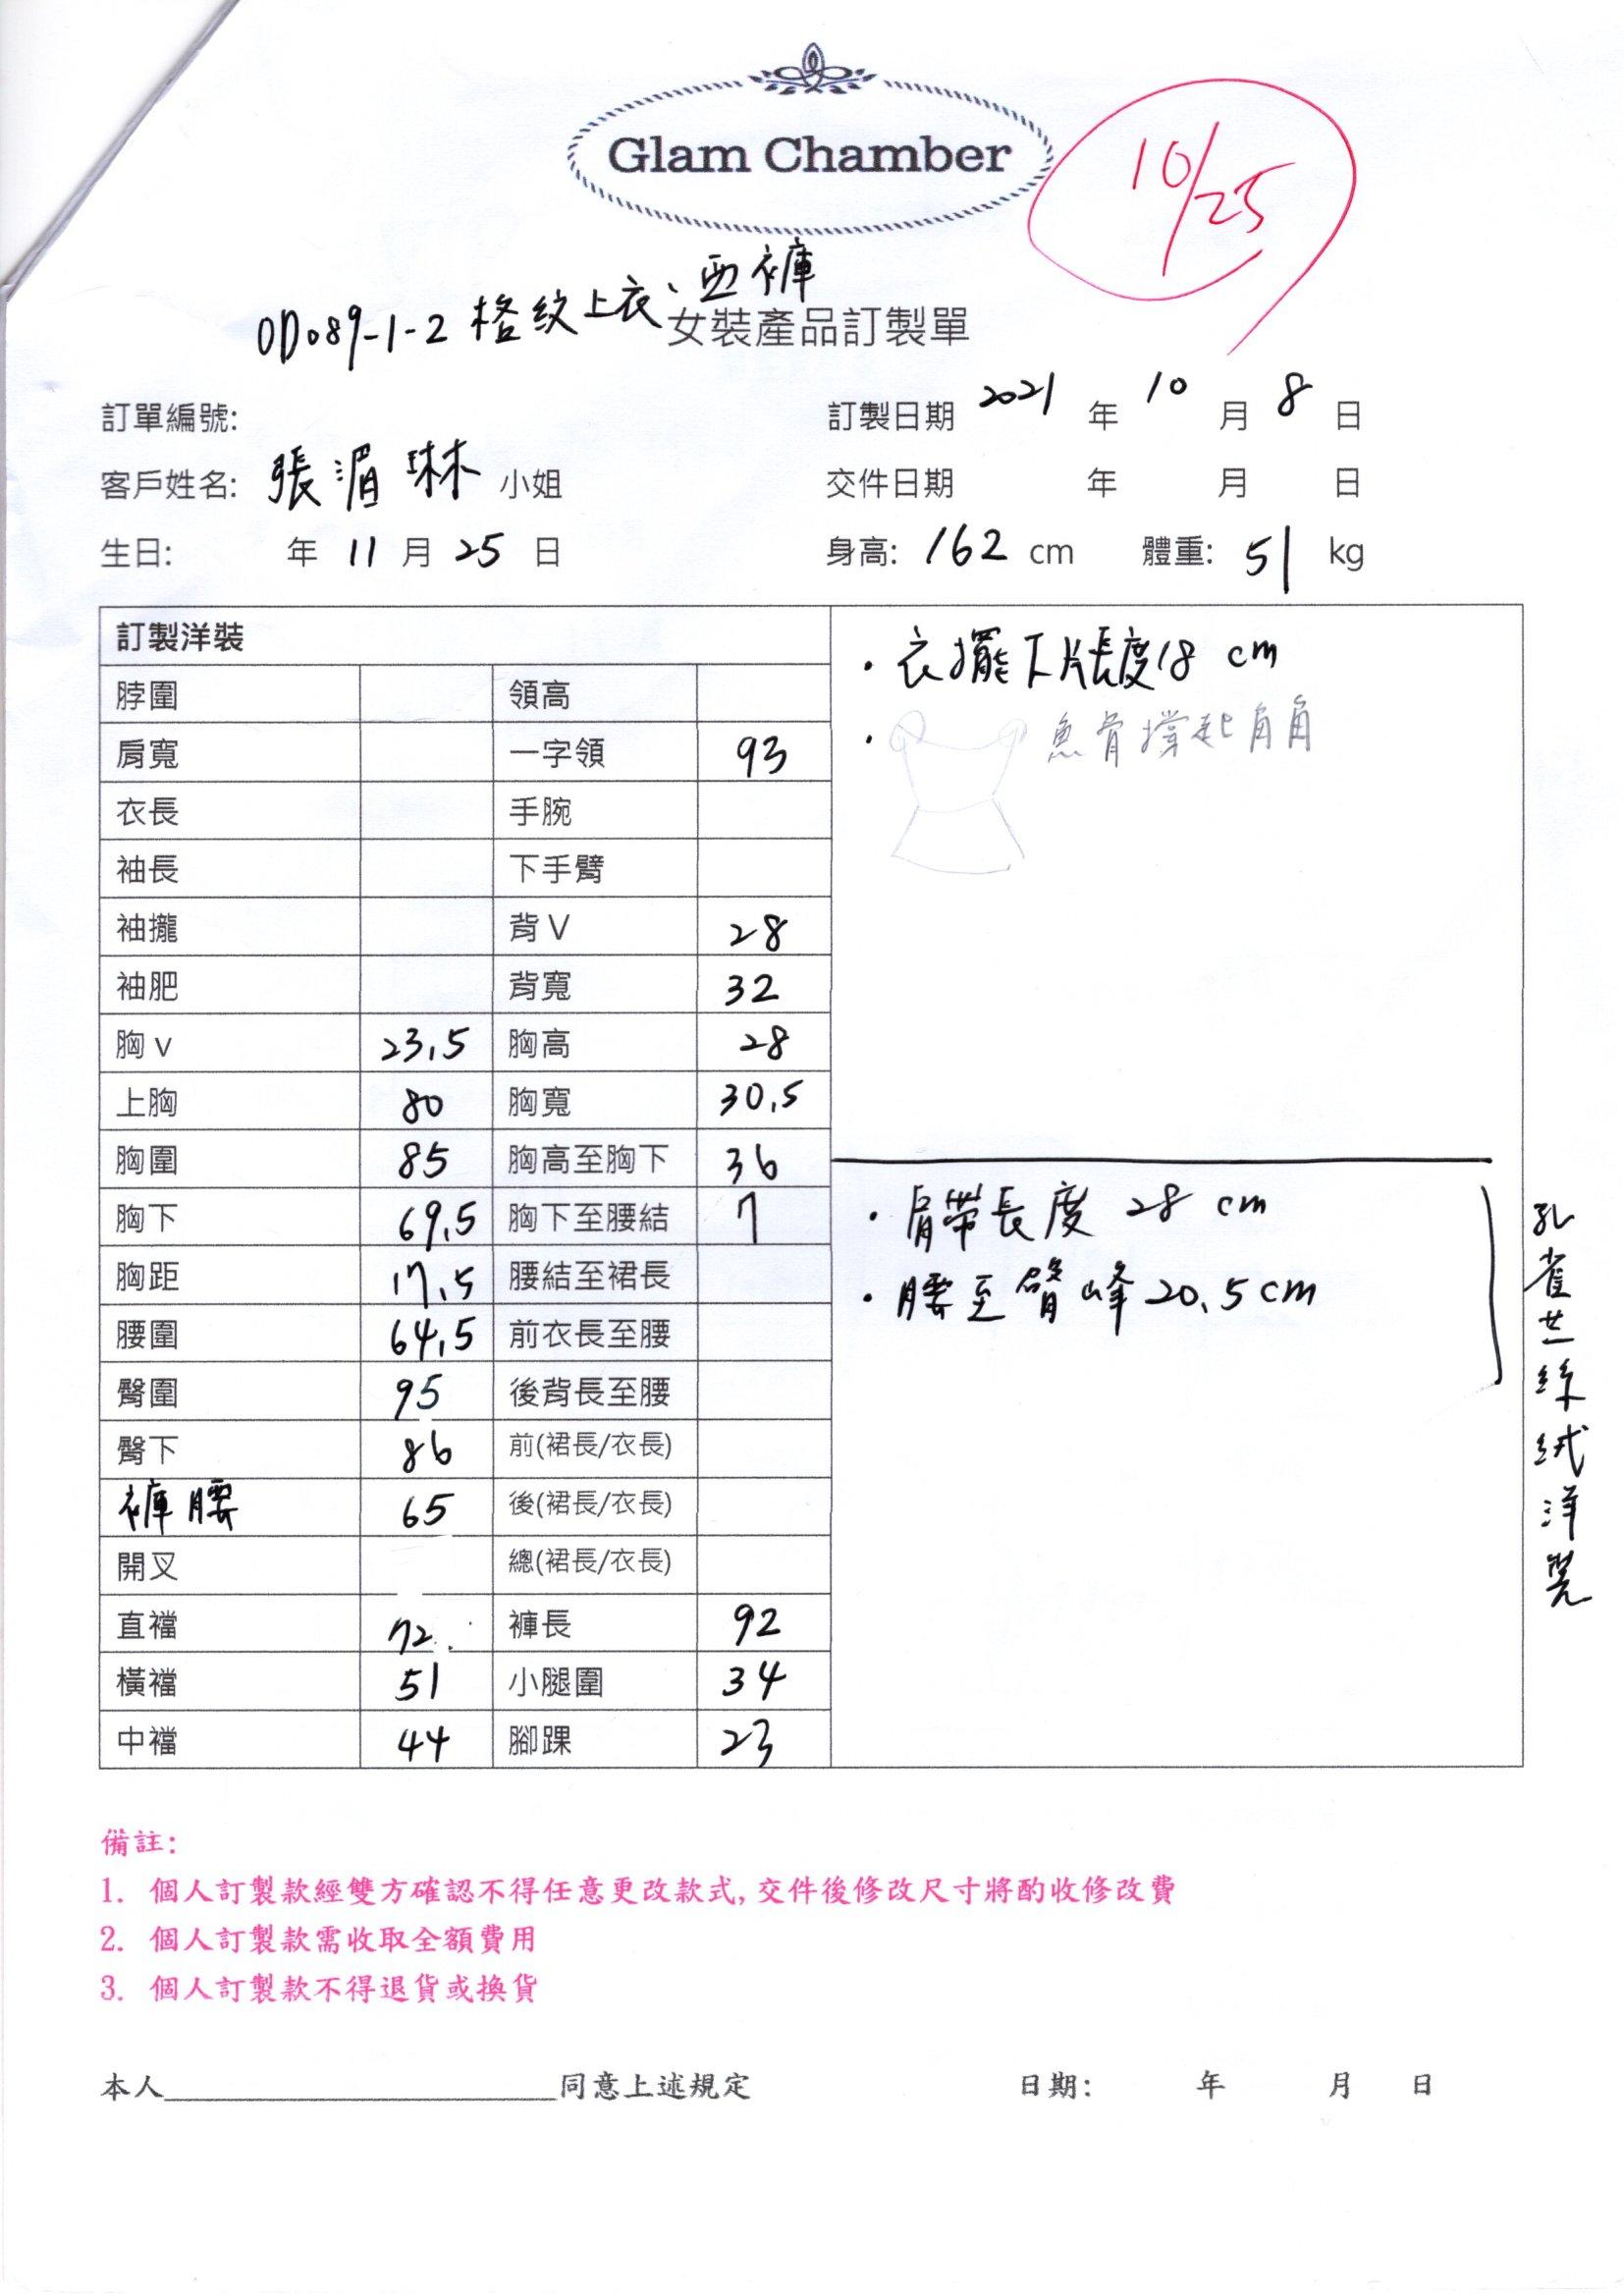 Glam Chamber
10/25
OD089-1-2 格紋上衣、西褲
女裝產品訂製單
訂單編號: 訂製日期 2021 年 10 月 8 日
客戶姓名: 張湄琳 小姐 交件日期 年 月 日
生日: 年 11 月 25 日 身高: 162 cm 體重: 51 kg
訂製洋裝
脖圍 領高
肩寬 一字領 93
衣長 手腕
袖長 下手臂
袖攏 背V 28
袖肥 背寬 32
胸v 23.5 胸高 28
上胸 80 胸寬 30.5
胸圍 85 胸高至胸下 36
胸下 69.5 胸下至腰結 7
胸距 17.5 腰結至裙長
腰圍 64.5 前衣長至腰
臀圍 95 後背長至腰
臀下 86 前(裙長/衣長)
褲腰 65 後(裙長/衣長)
開叉 總(裙長/衣長)
直襠 72. 褲長 92
橫襠 51 小腿圍 34
中襠 44 腳踝 23
·衣擺下片長度18 cm
· 魚骨撐起角角
·肩帶長度 28 cm
·腰至臀峰20.5cm
孔雀芭絲絨洋
備註:
1. 個人訂製款經雙方確認不得任意更改款式,交件後修改尺寸將酌收修改費
2. 個人訂製款需收取全額費用
3. 個人訂製款不得退貨或換貨
本人____________________同意上述規定 日期: 年 月 日